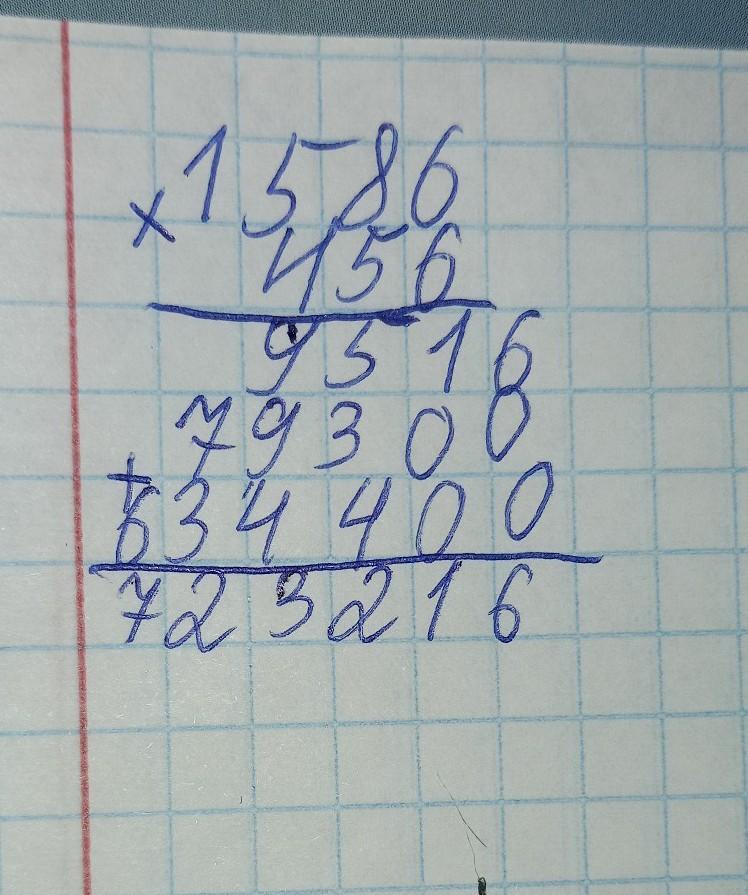 1586
× 456
9516
79300
+ 634400
723216